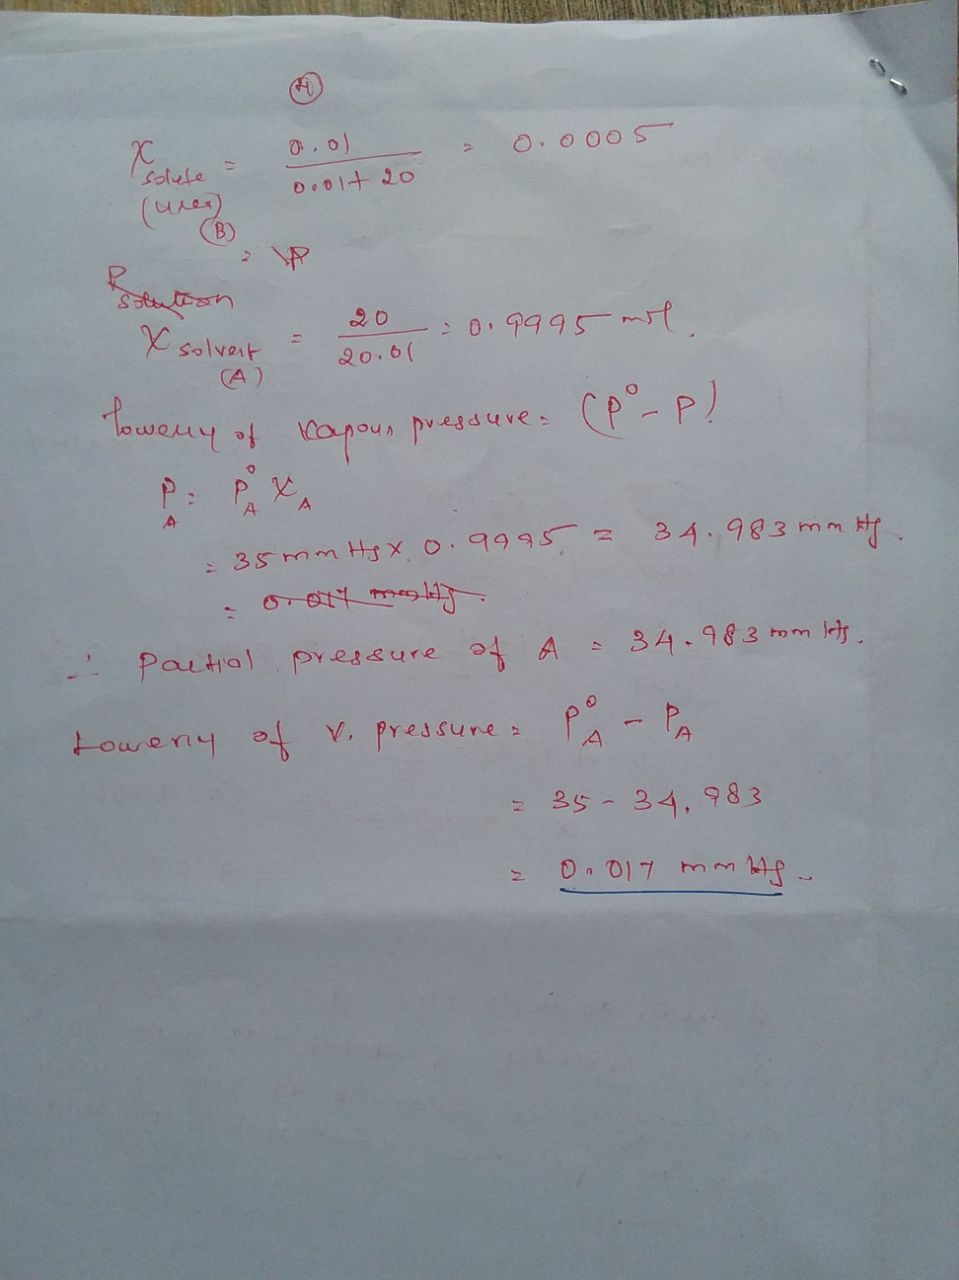 4
X solute (urea) (B) = 0.01 / 0.01 + 20 = 0.0005
P solution =
X solvent (A) = 20 / 20.01 = 0.9995 mol.
lowering of vapour pressure = (P° - P)
P_A = P°_A X_A
= 35 mm Hg x 0.9995 = 34.983 mm Hg.
= 0.017 mm Hg.
∴ Partial pressure of A = 34.983 mm Hg.
Lowering of v. pressure = P°_A - P_A
= 35 - 34.983
= 0.017 mm Hg.